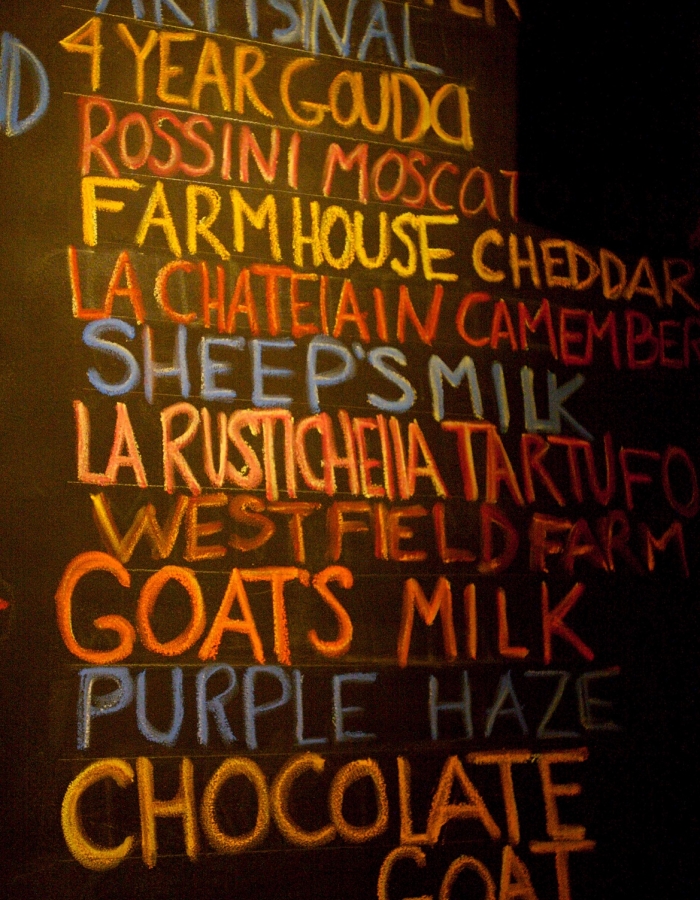 ARTISINAL
4 YEAR GOUDA
ROSSINI MOSCAT
FARMHOUSE CHEDDAR
LA CHATELAIN CAMEMBER
SHEEP'S MILK
LA RUSTICHELLA TARTUFO
WESTFIELD FARM
GOAT'S MILK
PURPLE HAZE
CHOCOLATE
GOAT